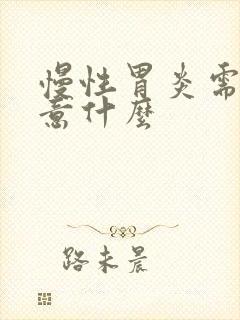 慢性胃炎需
意什麼
路未晨